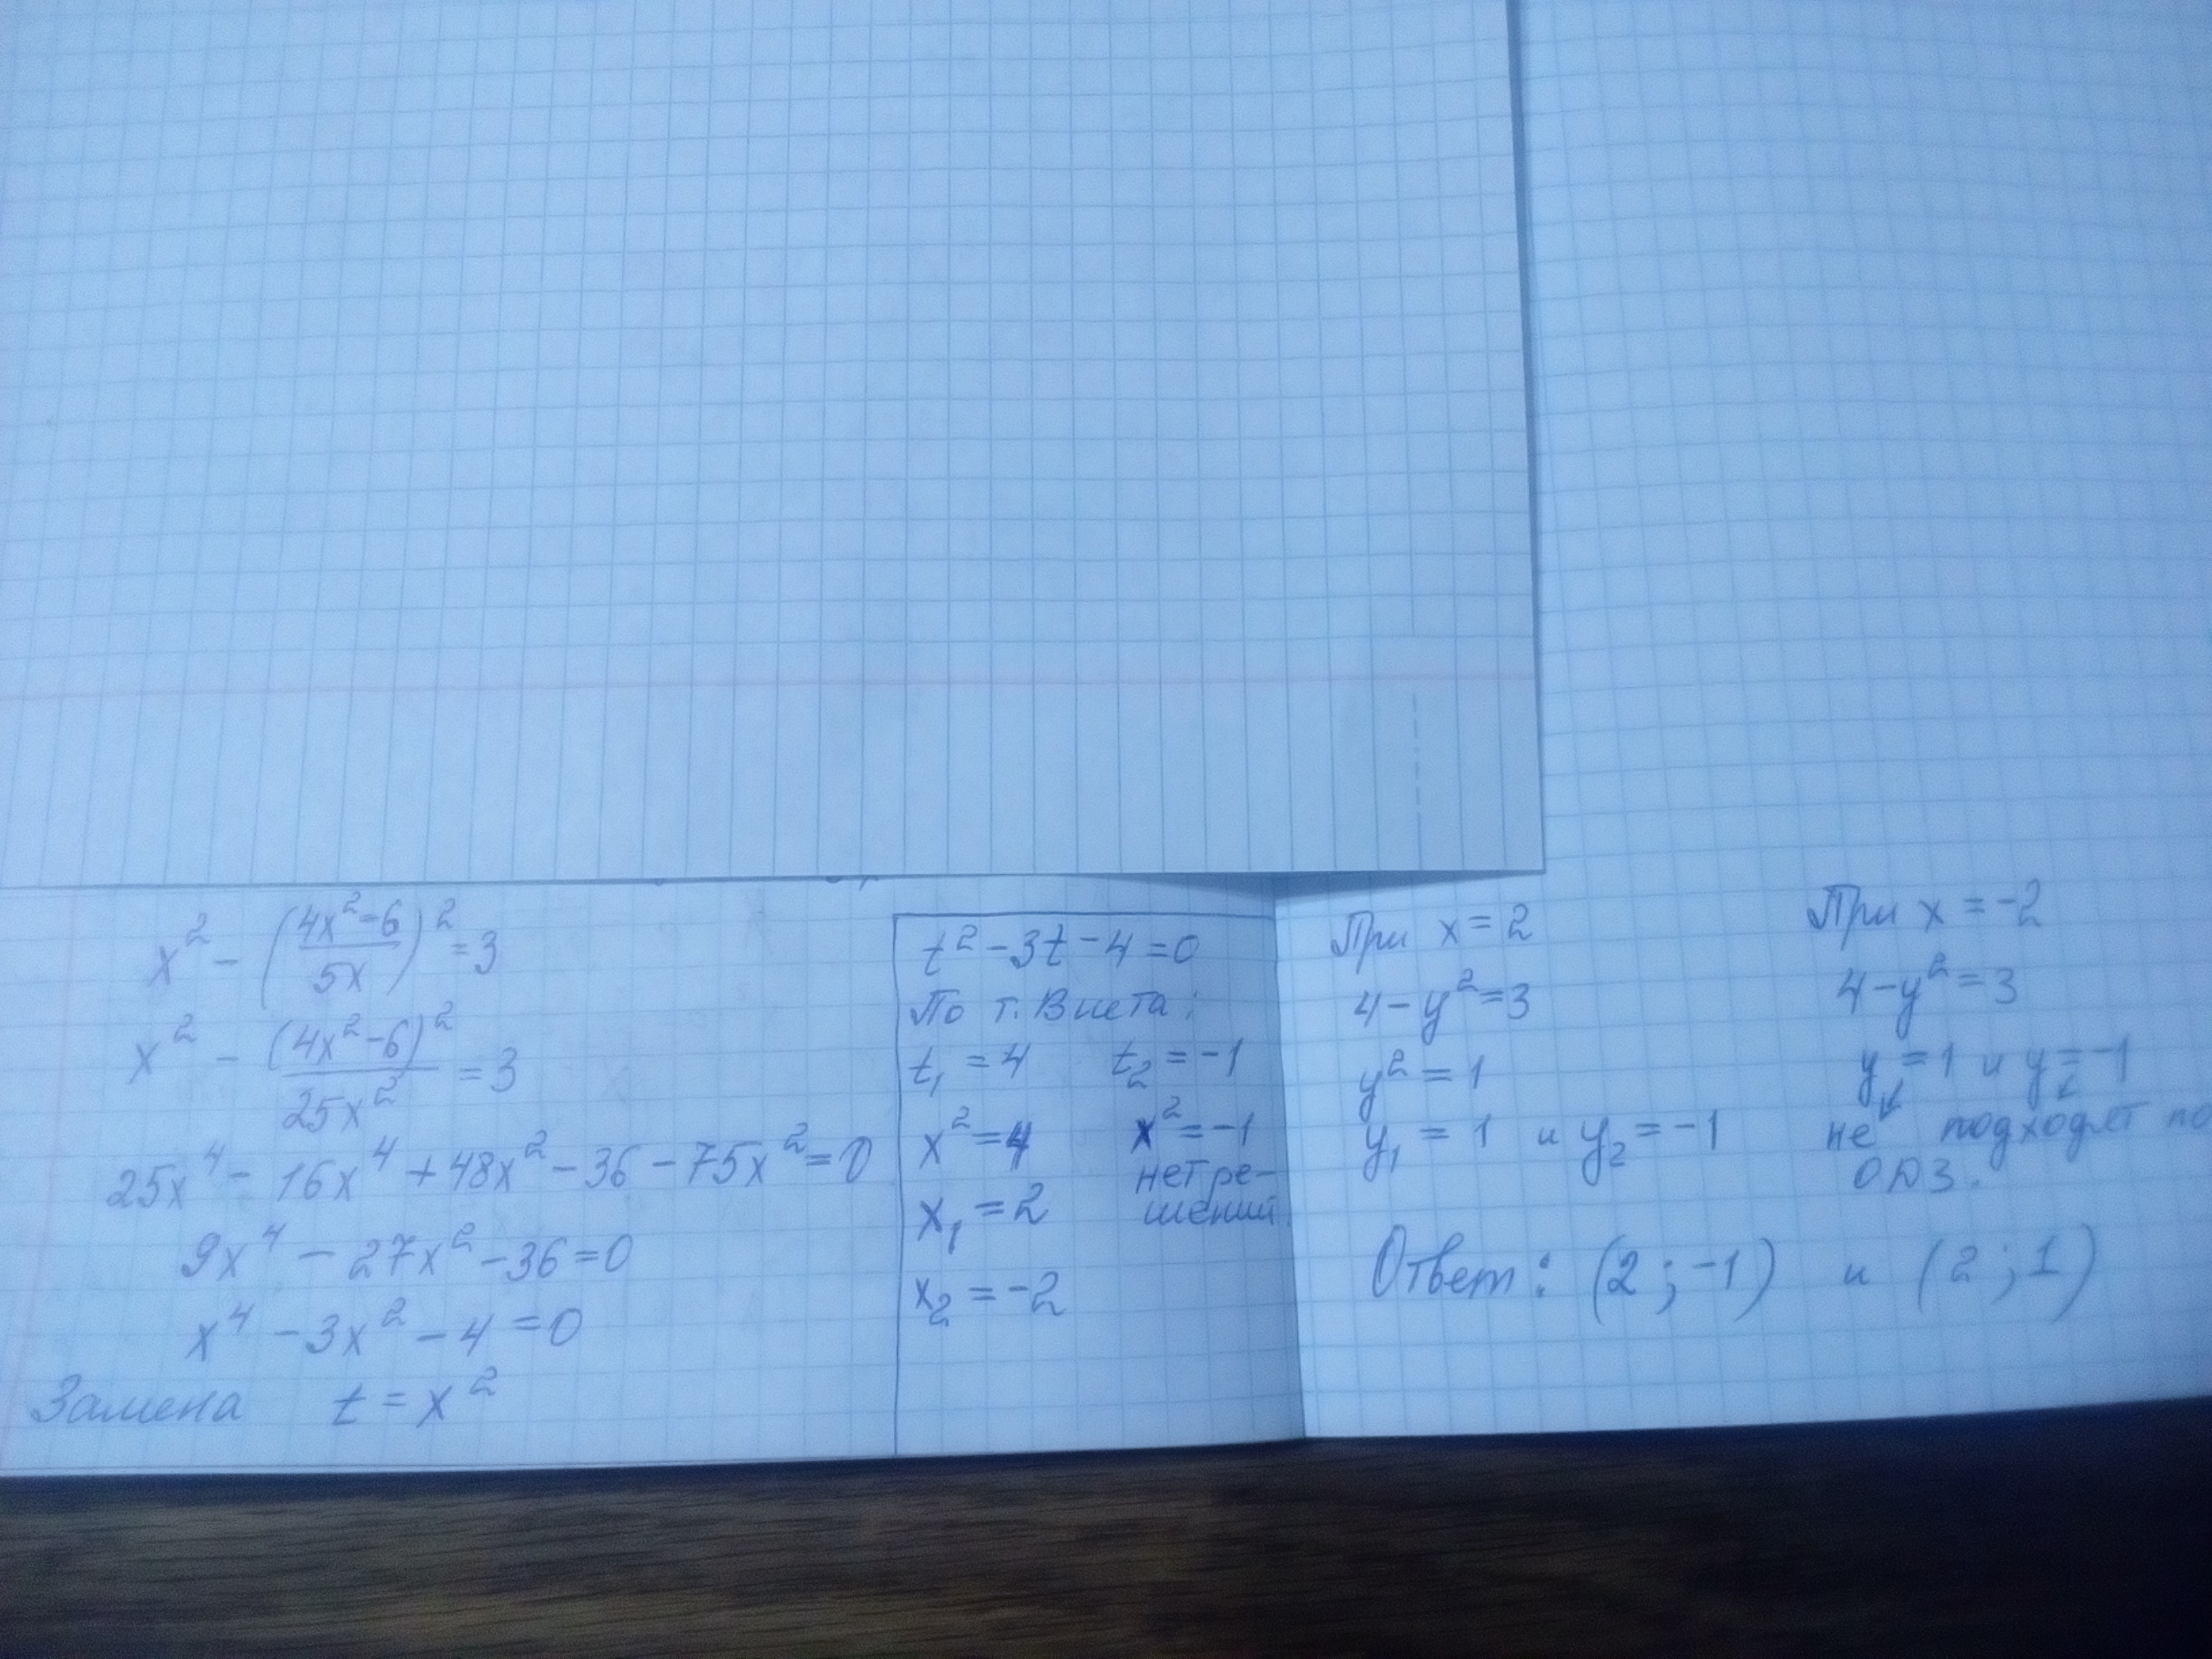 x² - ((4x²-6)/(5x))² = 3
x² - (4x²-6)²/(25x²) = 3
25x⁴ - 16x⁴ + 48x² - 36 - 75x² = 0
9x⁴ - 27x² - 36 = 0
x⁴ - 3x² - 4 = 0
Замена t = x²
t² - 3t - 4 = 0
По т. Виета:
t₁ = 4 t₂ = -1
x² = 4 x² = -1
нет ре-
x₁ = 2 шений.
x₂ = -2
При x = 2
4 - y² = 3
y² = 1
y₁ = 1 и y₂ = -1
При x = -2
4 - y² = 3
y = 1 и y = -1
не подходят по
ОДЗ.
Ответ: (2; -1) и (2; 1)